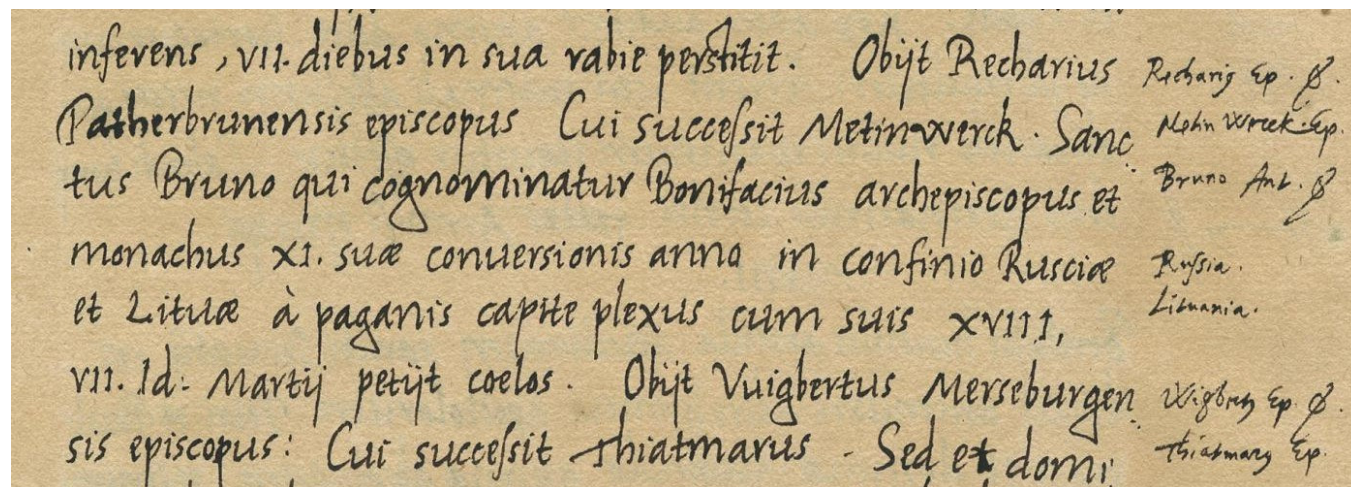 inferens, VII. diebus in sua rabie perstitit. Obijt Recharius
Patherbrunensis episcopus Cui successit Metinwerck. Sanc
tus Bruno qui cognominatur Bonifacius archepiscopus et
monachus XI. suæ conuersionis anno in confinio Rusciæ
et Lituæ à paganis capite plexus cum suis XVIII,
VII. Id: Martij petijt coelos. Obijt Vuigbertus Merseburgen
sis episcopus: Cui successit Thiatmarus. Sed et domi
Recharius Ep.
Metin Wreck. Ep.
Bruno
Russia.
Lituania.
Ep.
Thiatmarus Ep.